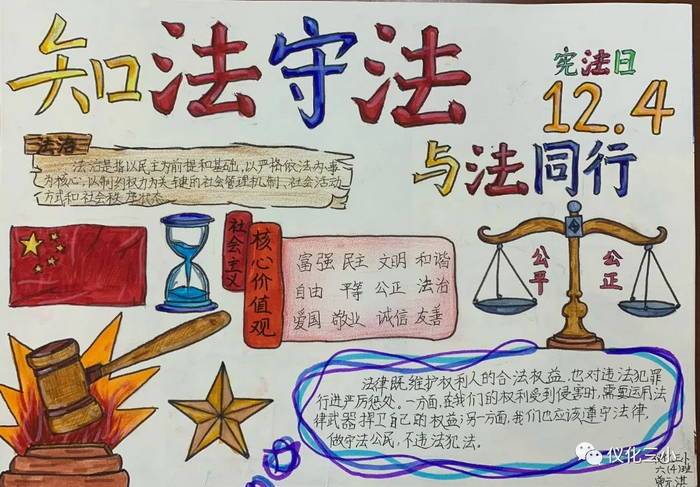 知法守法
宪法日
12.4
与法同行
法治
法治是指以民主为前提和基础，以严格依法办事
为核心，以制约权力为关键的社会管理机制、社会活动
方式和社会秩序状态
社会主义
核心价值观
富强 民主 文明 和谐
自由 平等 公正 法治
爱国 敬业 诚信 友善
公平
公正
法律既维护权利人的合法权益，也对违法犯罪
行进严厉惩处。一方面，在我们的权利受到侵害时，需要运用法
律武器捍卫自己的权益；另一方面，我们也应该遵守法律，
做守法公民，不违法犯法。
仪化三小
六(4)班